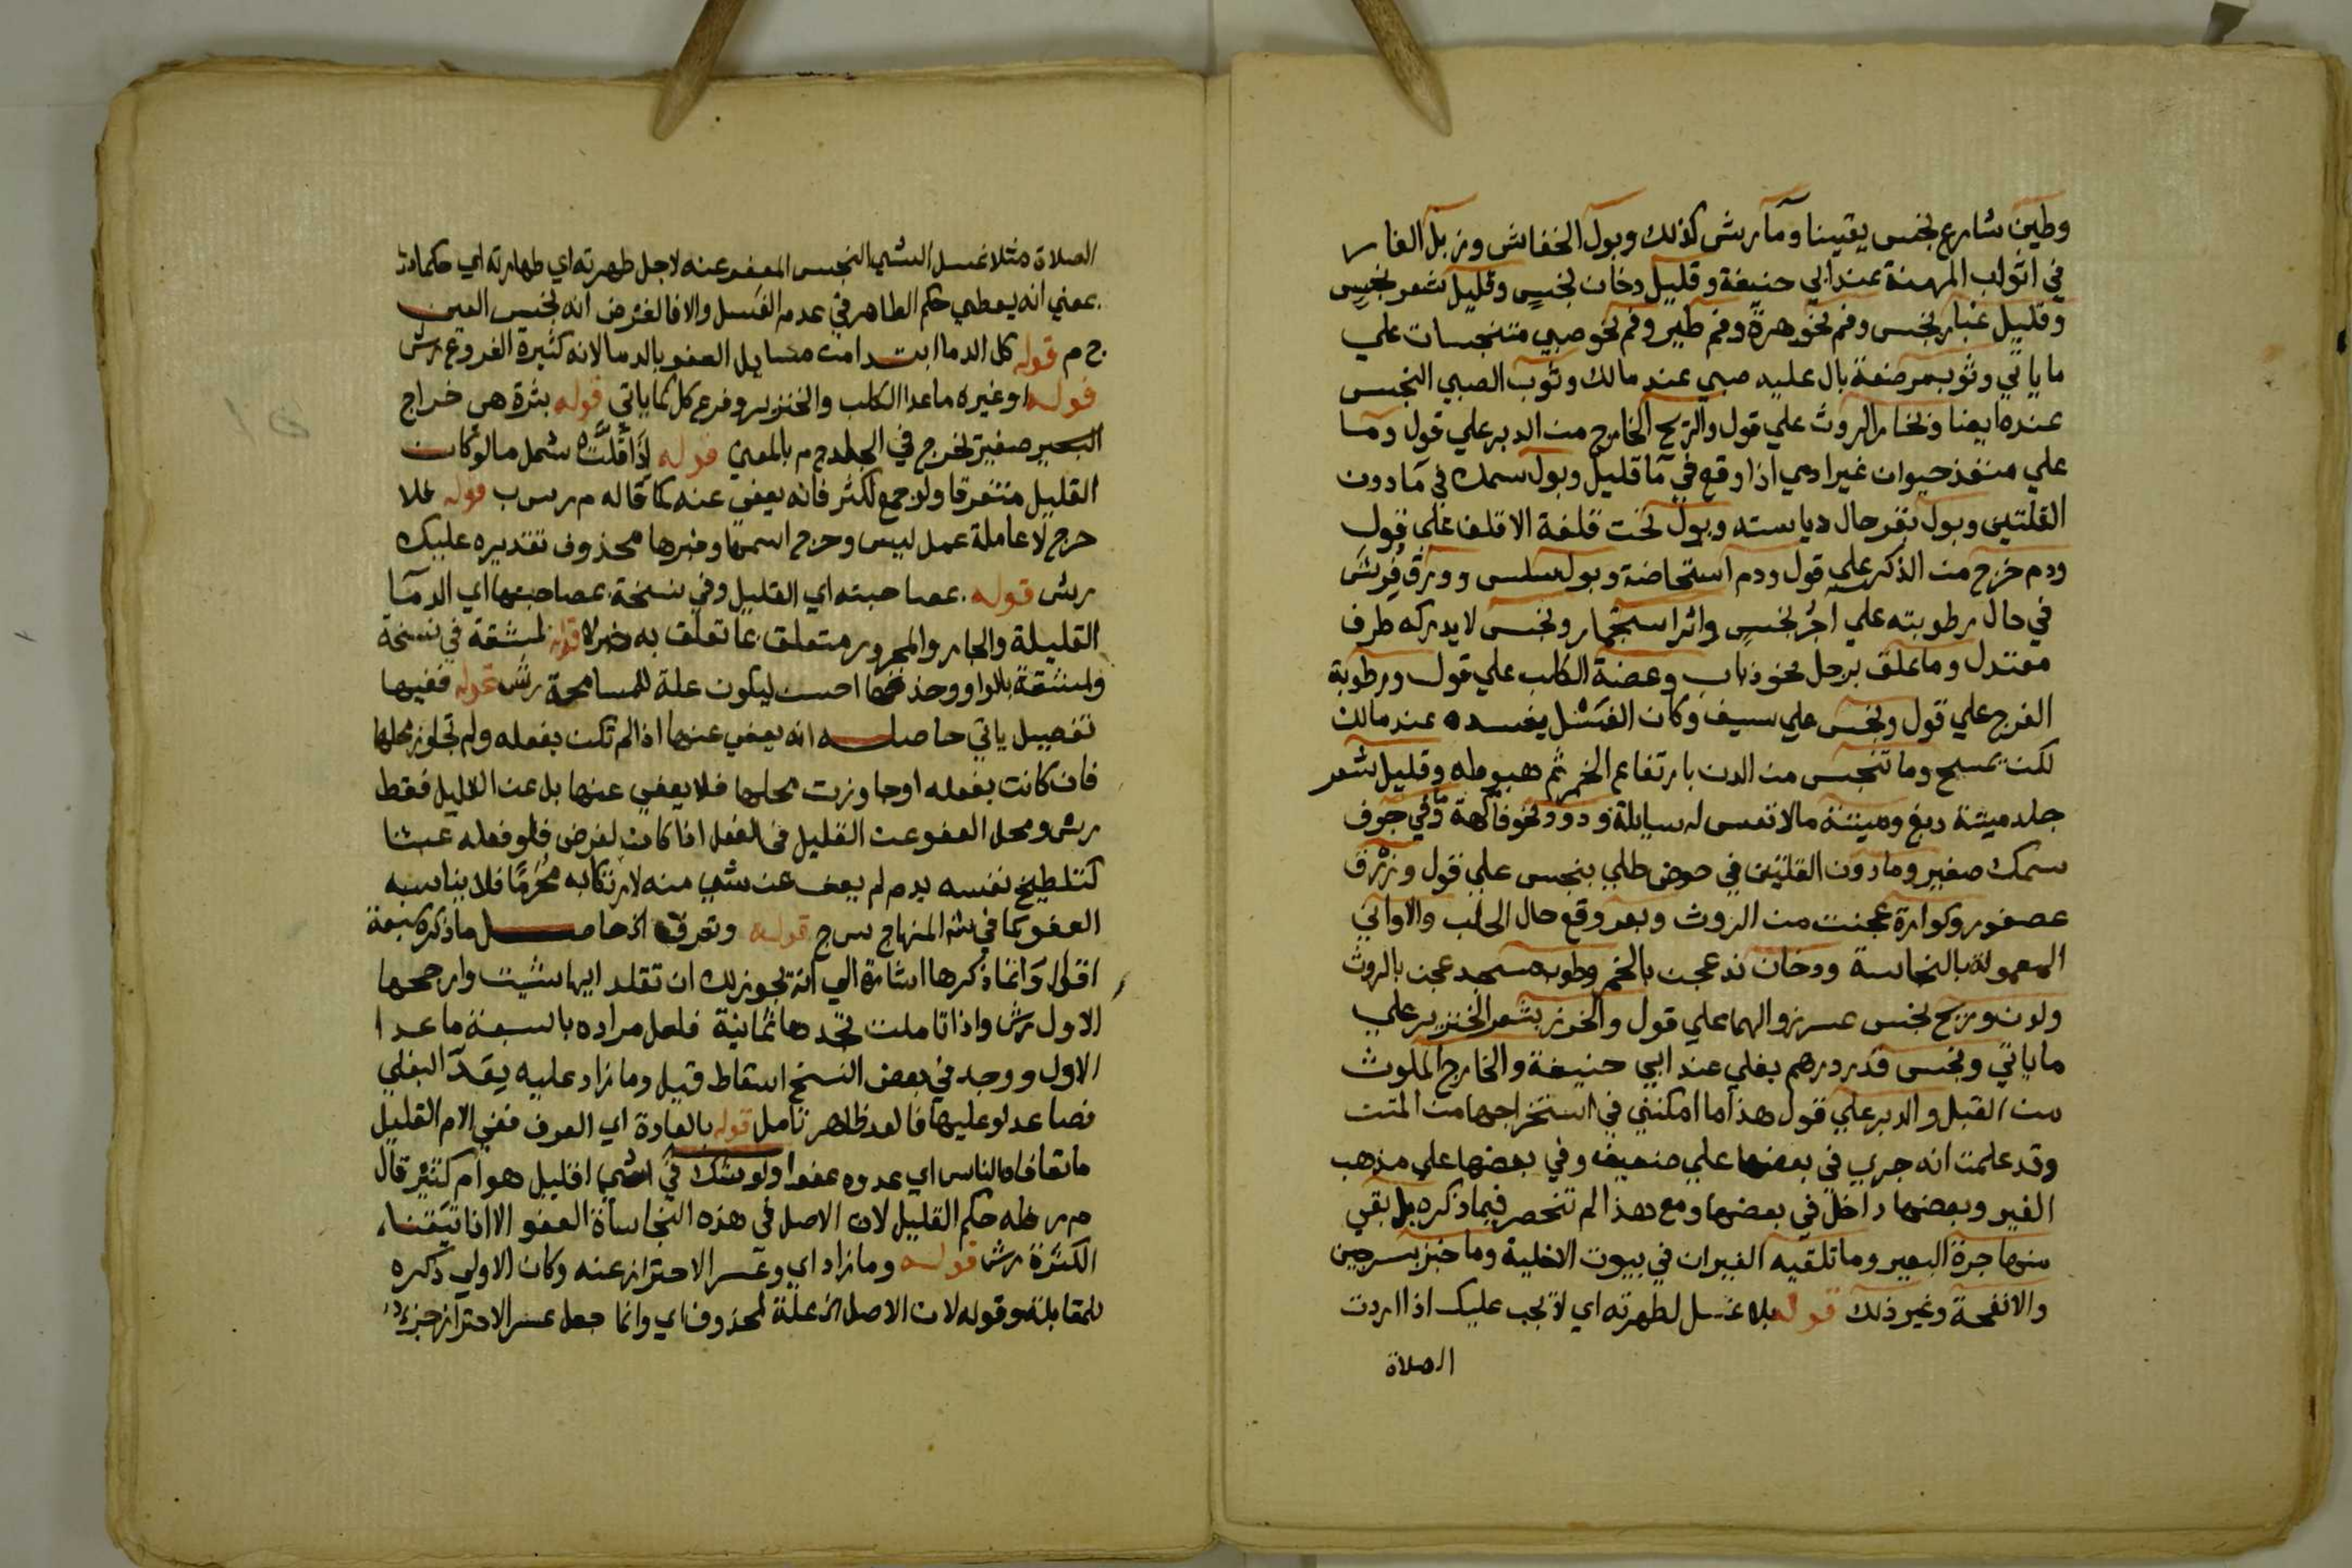 وطين شارع نجس يقينا وما رش كذلك وبول الخفاش وزبل الفار
في اثواب المهنة عند ابي حنيفة وقليل دخان نجسٍ وقليل شعر نجسٍ
وقليل غبار نجس وفم نحو هرة وفم طير وفم نحو صبي متنجسات علي
ما ياتي وثوب مرضعة بال عليه صبي عند مالك وثوب الصبي النجس
عنده ايضا وبخار الروث علي قول والريح الخارج من الدبر علي قول وما
علي منفذ حيوان غير ادمي اذا وقع في ما قليل وبول سمك في ما دون
القلتين وبول بقر حال دياسته وبول تحت قلفة الاقلف علي قول
ودم خرج من الذكر علي قول ودم استحاضة وبول سلس وورق فرش
في حال رطوبته علي اجر نجسٍ واثر استجمار ونجس لا يدركه طرف
معتدل وما علق برجل نحو ذباب وعضة الكلب علي قول ورطوبة
الفرج علي قول ونجس علي سيف وكان الغسل يفسده عند مالك
لكن يمسح وما تنجس من الدن بارتفاع الخمر ثم هبوطه وقليل شعر
جلد ميتة دبغ وميتة مالا نفس له سايلة ودود نحو فاكهة وما في جوف
سمك صغير وما دون القلتين في حوض طلي بنجس علي قول وزرق
عصفور وكوارة عجنت من الروث وبعر وقع حال الحلب والاواني
المعمولة بالنجاسة ودخان ند عجن بالخمر وطوب مسجد عجن بالروث
ولون وريح نجس عسر زوالهما علي قول والخرز بشعر الخنزير علي
ما ياتي ونجس قدر درهم بغلي عند ابي حنيفة والخارج الملوث
من القبل والدبر علي قول هذا ما امكنني في استخراجها من المتن
وقد علمت انه جري في بعضها علي ضعيف وفي بعضها علي مذهب
الغير وبعضها داخل في بعضها ومع هذا لم تنحصر فيما ذكره بل بقي
منها جرة البعير وما تلقيه الفيران في بيوت الاخلية وما خبز بسرجين
والانفحة وغير ذلك قوله بلا غسل لطهرته اي لا يجب عليك اذا اردت
الصلاة
الصلاة مثلا غسل الشي النجس المعفو عنه لاجل طهرته اي طهارته اي حكما
بمعني انه يعطي حكم الطاهر في عدم الغسل والا فالغرض انه نجس العين
ج م قوله كل الدما ابتدا من مسايل العفو بالدما لانه كثيرة الفروع رش
قوله او غيره ما عدا الكلب والخنزير وفرع كل كما ياتي قوله بثرة هي خراج
صغير تخرج في الجلد ج م بالمعني قوله اذا قلت شمل ما لو كان
القليل متفرقا ولو جمع لكثر فانه يعفي عنه كما قاله م ر س ب قوله فلا
حرج لا عاملة عمل ليس وحرج اسمها وخبرها محذوف تقديره عليك
رش قوله بمصاحبته اي القليل وفي نسخة بمصاحبتها اي الدما
القليلة والجار والمجرور متعلق بما تعلق به خبر لا قوله لمشقة في نسخة
ولمشقة بالواو وحذفها احسن ليكون علة للمسامحة رش قوله ففيها
تفصيل ياتي حاصله انه يعفي عنها اذا لم تكن بفعله ولم تجاوز محلها
فان كانت بفعله او جاوزت محلها فلا يعفي عنها بل عن القليل فقط
رش ومحل العفو عن القليل في الفعل اذا كان لغرض فلو فعله عبثا
كتلطيخ نفسه بدم لم يعف عن شي منه لارتكابه محرما فلا يناسبه
العفو كما في ش المنهاج س ج قوله وتعرف الخ حاصل ما ذكره سبعة
اقوال وانما ذكرها اشارة الي انه يجوز لك ان تقلد ايها شيت وارجحها
الاول رش واذا تاملت تجدها ثمانية فلعل مراده بالسبعة ما عدا
الاول ووجد في بعض النسخ اسقاط قيل وما زاد عليه بقدر البغلي
فصاعدا وعليها فالعد ظاهر تامل قوله بالعادة اي العرف ففي الام القليل
ما تعافاه الناس اي عدوه عفوا ولو شك في شي اقليل هو ام كثير قال
م ر فله حكم القليل لان الاصل في هذه النجاسة العفو الا اذا تيقنا
الكثرة رش قوله وما زاد اي وعسر الاحتراز عنه وكان الاولي ذكره
للمقابلة وقوله لان الاصل الخ علة لمحذوف اي وانما جعل عسر الاحتراز